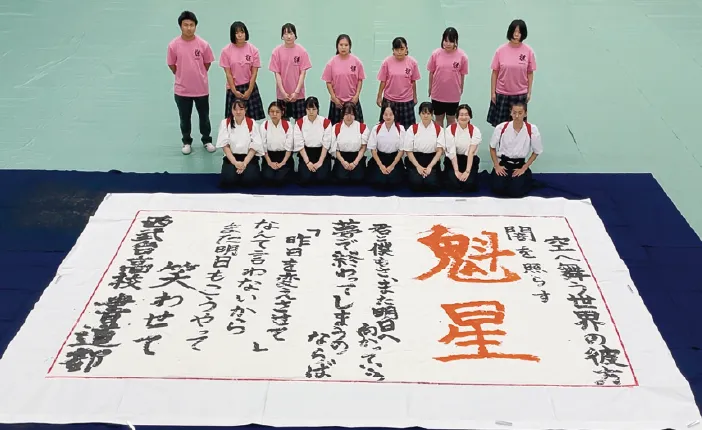 空へ舞う世界の彼方
闇を照らす
魁星
君と僕もさまた明日へ
向かっていこう
夢で終わってしまうの
ならば
「昨日を変えさせて」
なんて言わないから
また明日もこうやって
笑わせて
西武台高校 書道部